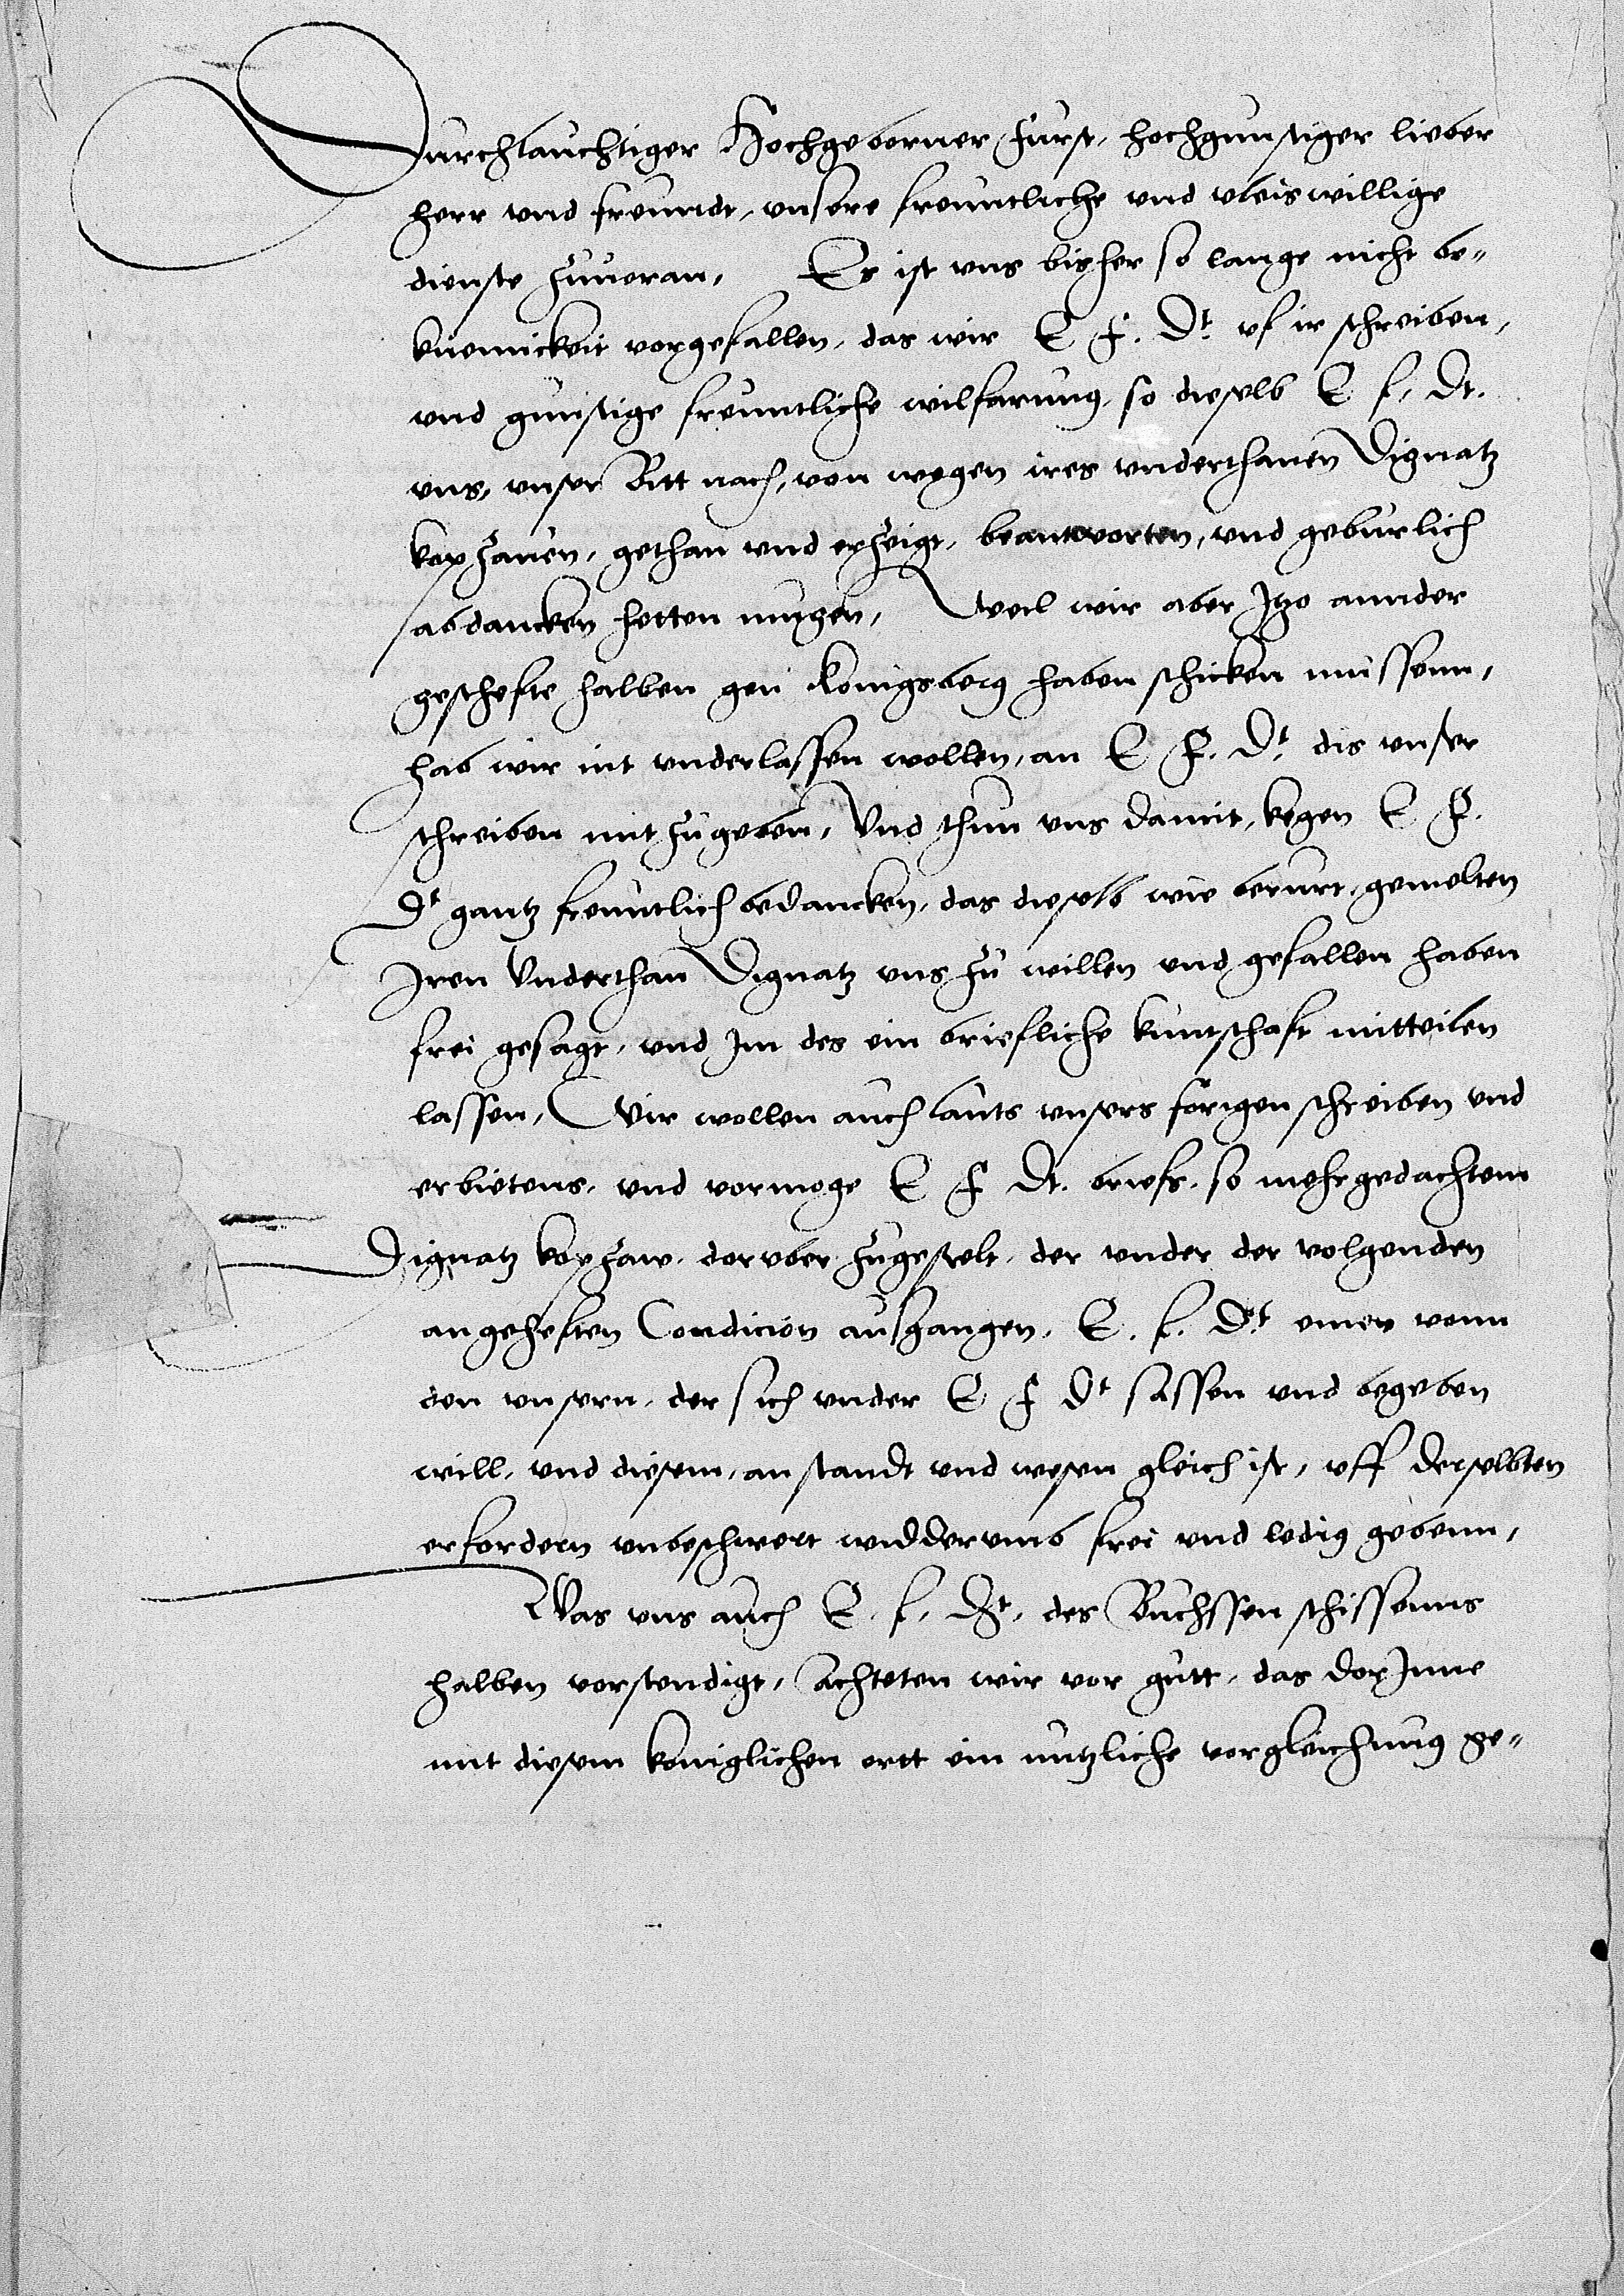 Durchlauchtiger Hochgeborner Furst, hochgunstiger lieber
herr vnd freundt, vnsere freuntliche vnd vleiswillige
dienste zuuoran, Es ist vns bisher so lange nicht be-
quemickeit vorgefallen, das wir E F. Dt. vf ir schreiben,
vnd gunstige freuntliche wilfarung, so dieselb E f. Dt.
vns, vnser Bitt nach, von wegen ires vnderthanen Dignatz
kopzauen, gethan vnd erzeigt, beantworten, vnd geburlich
abdancken hetten mugen, Weil wir aber Jtzo annder
gescheffte halben gen Konigsberg haben schicken mussenn,
hab wir nit vnderlassen wollen, an E F. Dt. dis vnser
schreiben mit zugeben, Vnd thun vns damit, kegen E F.
Dt gantz freuntlich bedancken, das dieselb wie berurt, gemelten
Jren Vnderthan Dignatz vns zu willen vnd gefallen haben
frei gesagt, vnd Jm des ein briefliche kuntschaft mitteilen
lassen, Wir wollen auch lauts vnsers forigen schreiben vnd
erbietens, vnd vormoge E F Dt. briefs, so mehrgedachtem
Dignatz kopzaw, doruber zugestelt, der vnder der volgenden
angeheften Condicion aussgangen, E. f. Dt einen vonn
den vnsern, der sich vnder E F Dt lassen vnd begeben
will, vnd diesem, an standt vnd wesen gleich ist, vff derselbten
erfordern vnbeschwert widderumb frei vnd ledig gebenn,
Was vns auch E. f. Dt. des Buchssen schissenns
halben vorstendigt, Achteten wir vor gutt, das dorJnne
mit diesem koniglichen ortt ein nutzliche vorgleichnung ge-